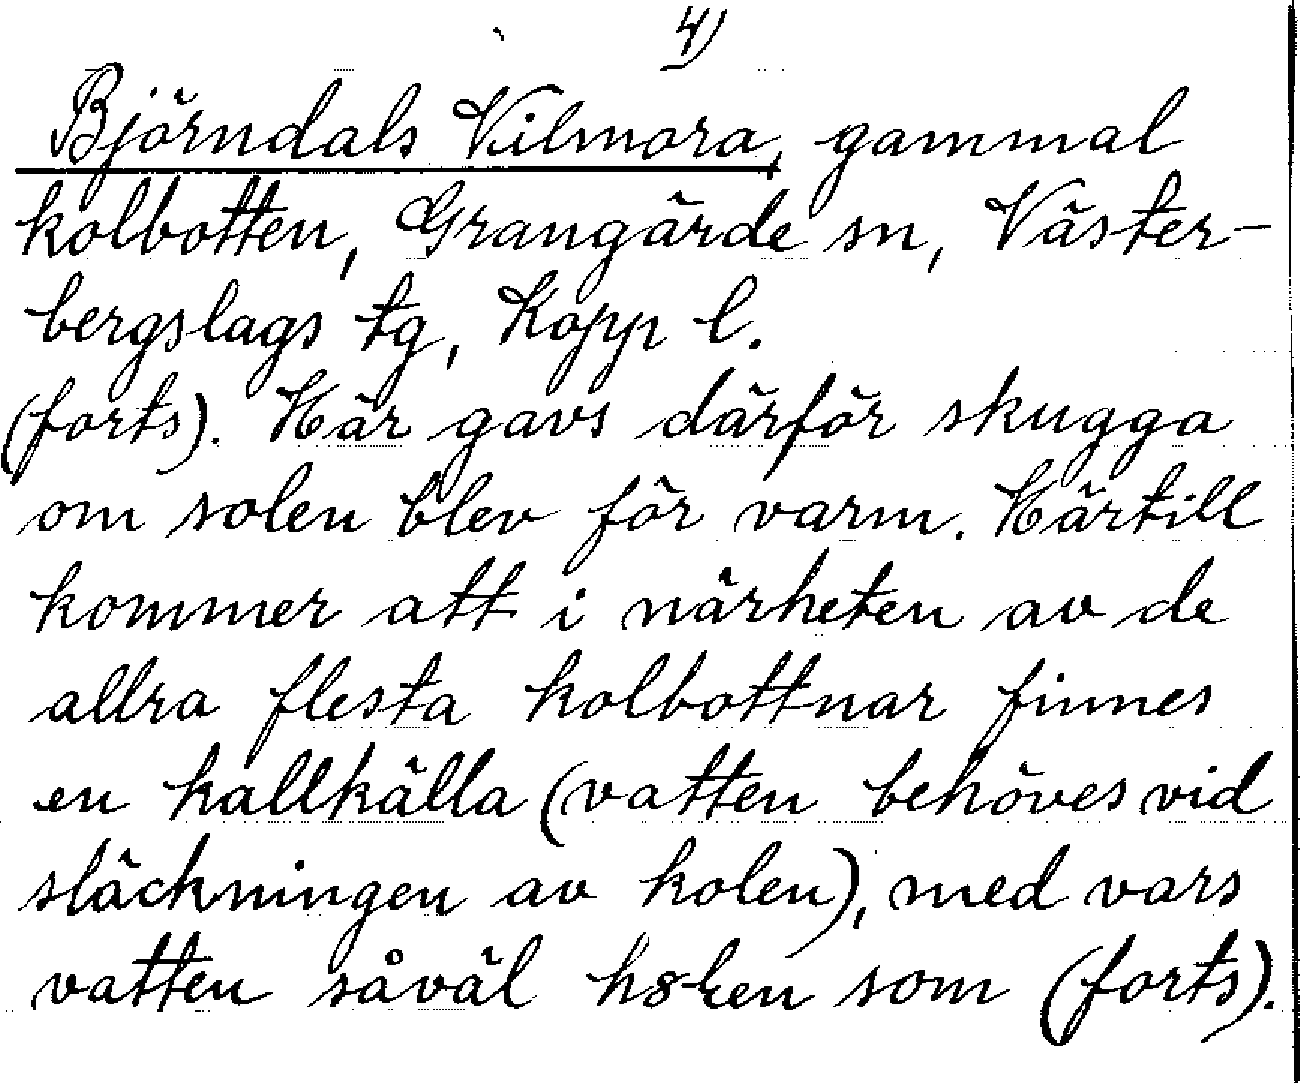 4)
Björndals Vilmora, gammal
kolbotten, Grangärde sn, Väster-
bergslags tg, Kopp l.
(forts). Här gavs därför skugga
om solen blev för varm. Härtill
kommer att i närheten av de
allra flesta kolbottnar finnes
en kallkälla (vatten behöves vid
släckningen av kolen), med vars
vatten såväl som (forts).